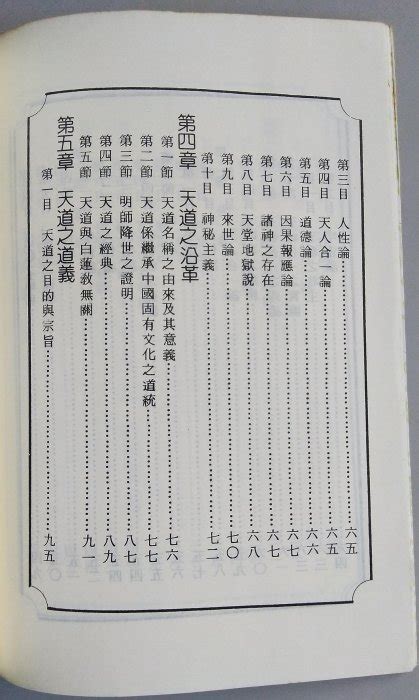 第三目　人性論……六五
第四目　天人合一論……六五
第五目　道德論……六六
第六目　因果報應論……六七
第七目　諸神之存在……六七
第八目　天堂地獄說……六八
第九目　來世論……七〇
第十目　神秘主義……七二
第四章　天道之沿革
第一節　天道名稱之由來及其意義……七六
第二節　天道係繼承中國固有文化之道統……七七
第三節　明師降世之證明……八七
第四節　天道之經典……八九
第五節　天道與白蓮教無關……九一
第五章　天道之道義
第一目　天道之目的與宗旨……九五